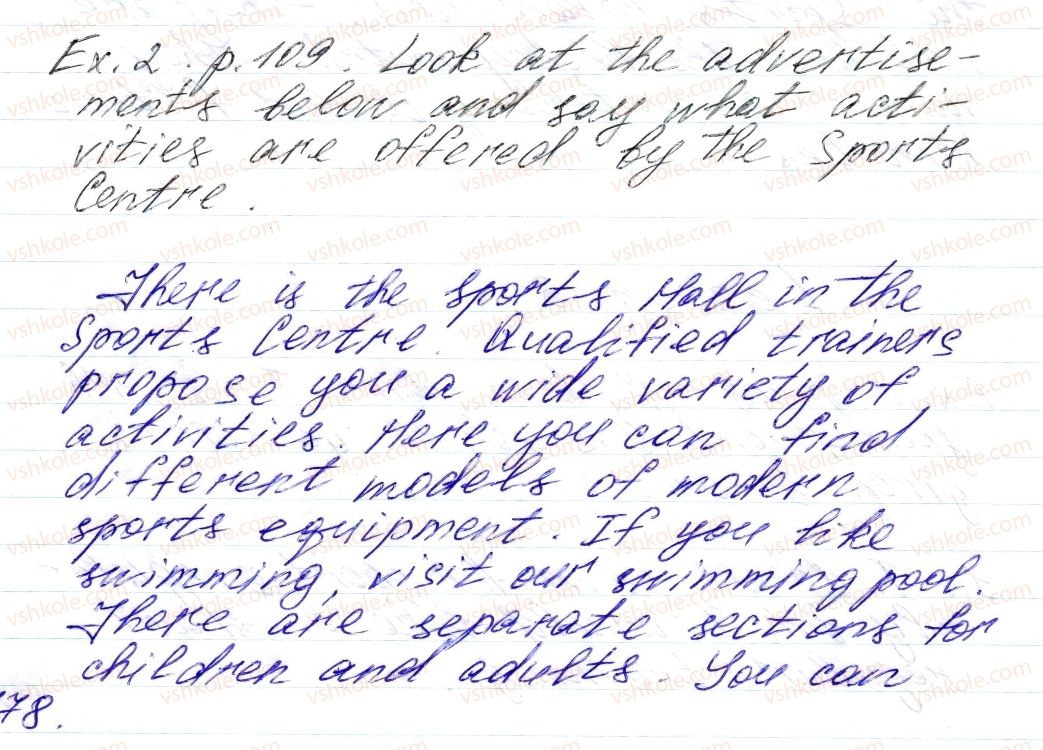 Ex. 2. p. 109. Look at the advertise-
ments below and say what acti-
vities are offered by the Sports
Centre.
There is the sports Hall in the
Sports Centre. Qualified trainers
propose you a wide variety of
activities. Here you can find
different models of modern
sports equipment. If you like
swimming, visit our swimming pool.
There are separate sections for
children and adults. You can
78.
vshkole.com